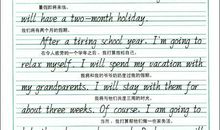 暑假即将来临。
will have a two-month holiday.
我们将有两个月的假期。
After a tiring school year. I'm going to
在令人疲劳的一个学年之后，我打算放松自己。
relax myself. I will spend my vacation with
我将和我的爷爷奶奶度过我的假期。
my grandparents. I will stay with them for
我将与他们共度三周的时光。
about three weeks. Of course. I am going to
当然，我打算帮他们做一些家务活。